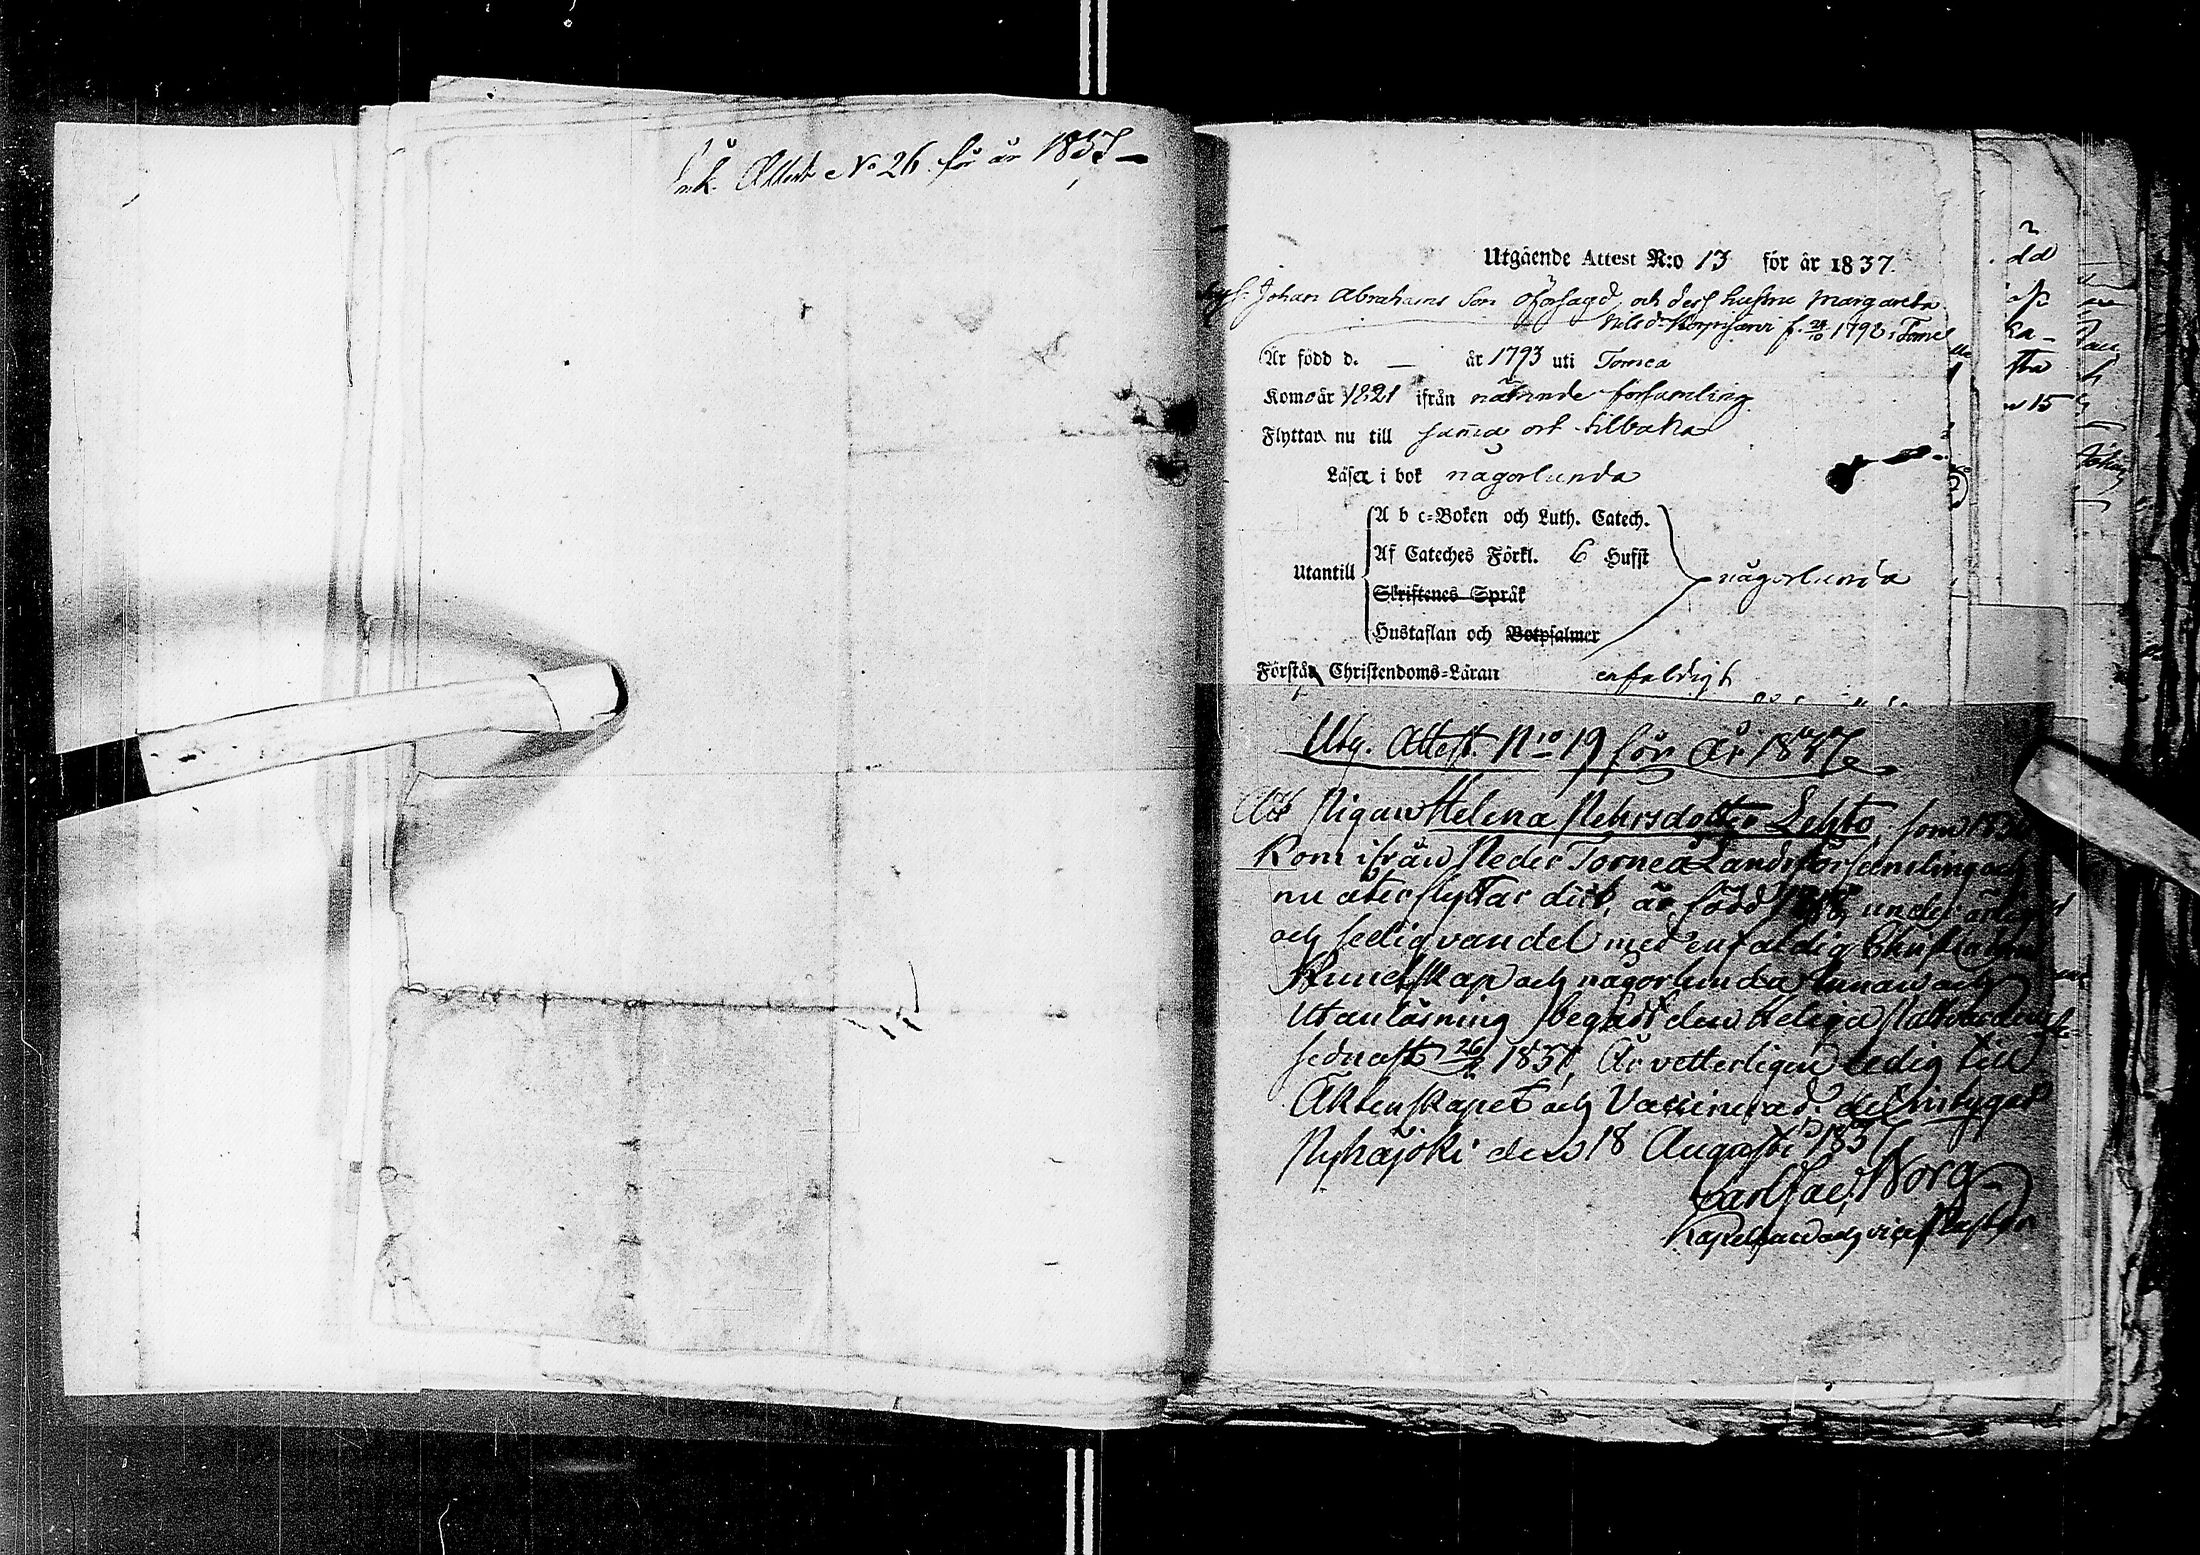 Ink. Attest No 26 för år 1837
Utgående Attest N:o 13 för år 1837.
Johan Abrahams Son Oförsagd, och dess hustru Margareta
Nilsd:r Korpijärvi f. 1798 i Torneå
Är född d. — år 1793 uti Torneå
Kom år 1821 ifrån nämnde församling
Flyttar nu till samma ort tillbaka
Läser i bok någorlunda
A b c-Boken och Luth. Catech.
Af Cateches Förkl. 6 Hufst
Utantill någorlunda
Skriftenes Språk
Hustaflan och Botpsalmer
Förstår Christendoms-Läran enfaldigt
Utg. Attest N:ro 19 för År 1837
Att Pigan Helena Pehrsdotter Lehto, som
kom ifrån Neder Torneå Landsförsamling och
nu återflyttar dit, är född 1818, under ärlig
och sedig vandel med enfaldig Christendoms
Kundskap och någorlunda Innan och
Utanläsning begått den Heliga Nattvarden
sednast 26 1837, Är vetterligen ledig till
Äktenskapet och Vaccinerad. det intygas
Pyhäjoki den 18 Augusti 1837
Carl Jac. Borg
Kapellan och vice Pastor
dd
ka-
sta
15